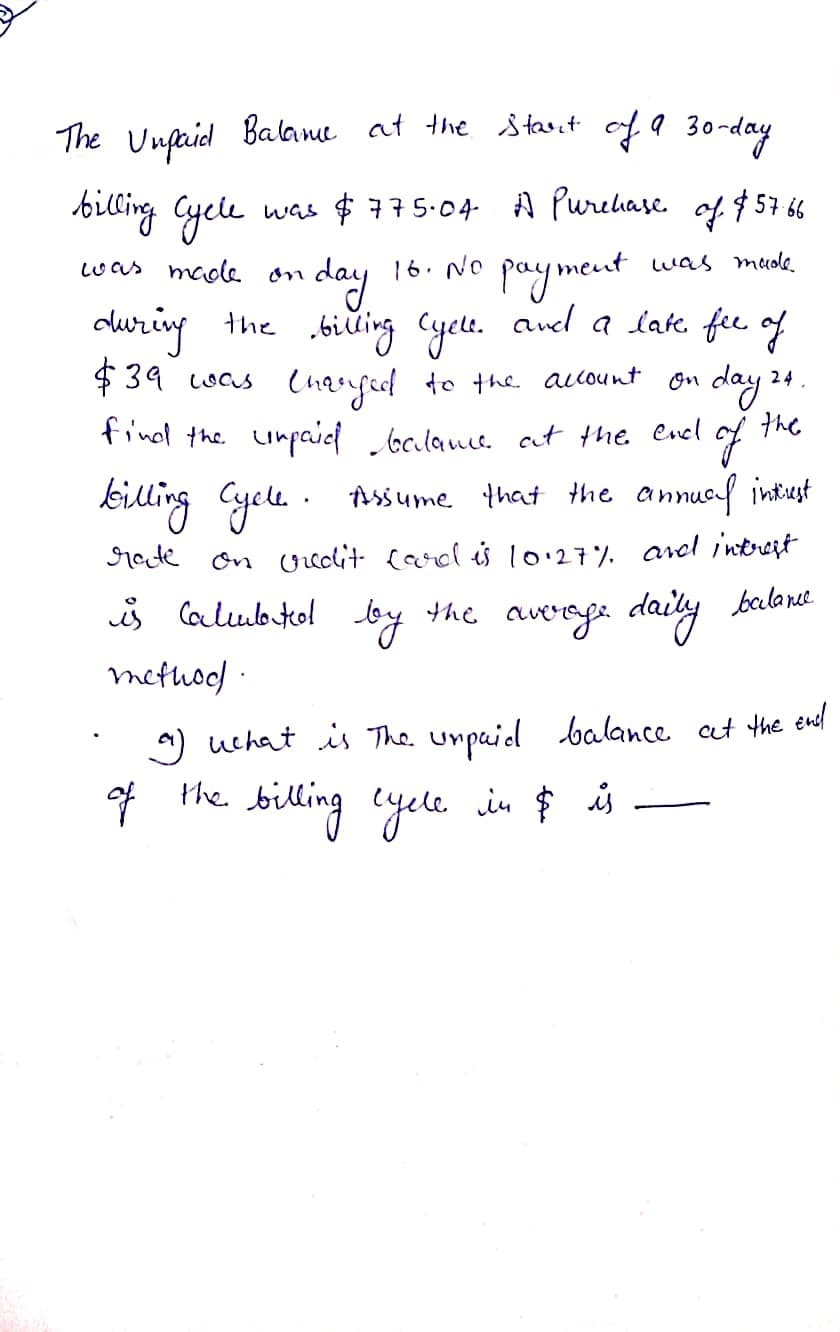 The Unpaid Balance at the start of a 30-day
billing Cycle was $ 775.04 A Purchase of $ 57.66
was made on day 16. No payment was made
during the billing Cycle. and a late fee of
$ 39 was Charged to the account on day 24.
find the unpaid balance at the end of the
billing Cycle. Assume that the annual intrest
rate on credit card is 10.27% and intrest
is Calculated by the average daily balance
method.
a) what is The unpaid balance at the end
of the billing cycle in $ is —